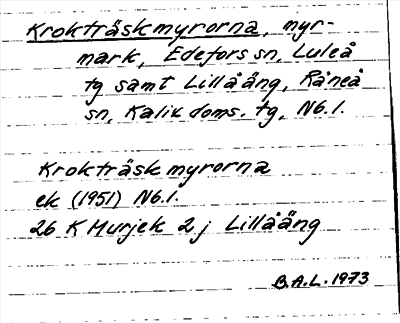 Krokträskmyrorna, myr-
mark, Edefors sn, Luleå
tg samt Lillåäng, Råneå
sn, Kalix doms. tg, N6.1.
Krokträskmyrorna
ek (1951) N6.1.
26 K Murjek 2 j Lillåäng
B.A.L. 1973